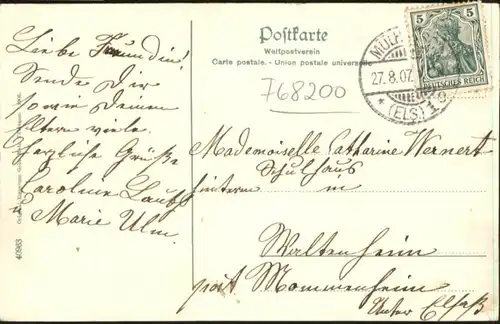 Postkarte
Weltpostverein
Carte postale. - Union postale universelle
768200
5 5
DEUTSCHES REICH
MÜLH
27.8.07.
* (ELS) 1
Liebe Freundin!
Sende Dir
sowie Deinen
Eltern viele
herzliche Grüße
Caroline
u Marie Ulm.
Mademoiselle Catharine Wernert
Schulhaus
hinterm
in
Waltenheim
post Mommenheim
Unter Elsaß
40963